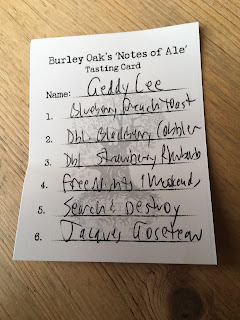 Burley Oak's 'Notes of Ale'
Tasting Card
Name: Geddy Lee
1. Blueberry French Toast
2. Dbl Blackberry Cobbler
3. Dbl Strawberry Rhubarb
4. Free Nights / Weekends
5. Search & Destroy
6. Jacques